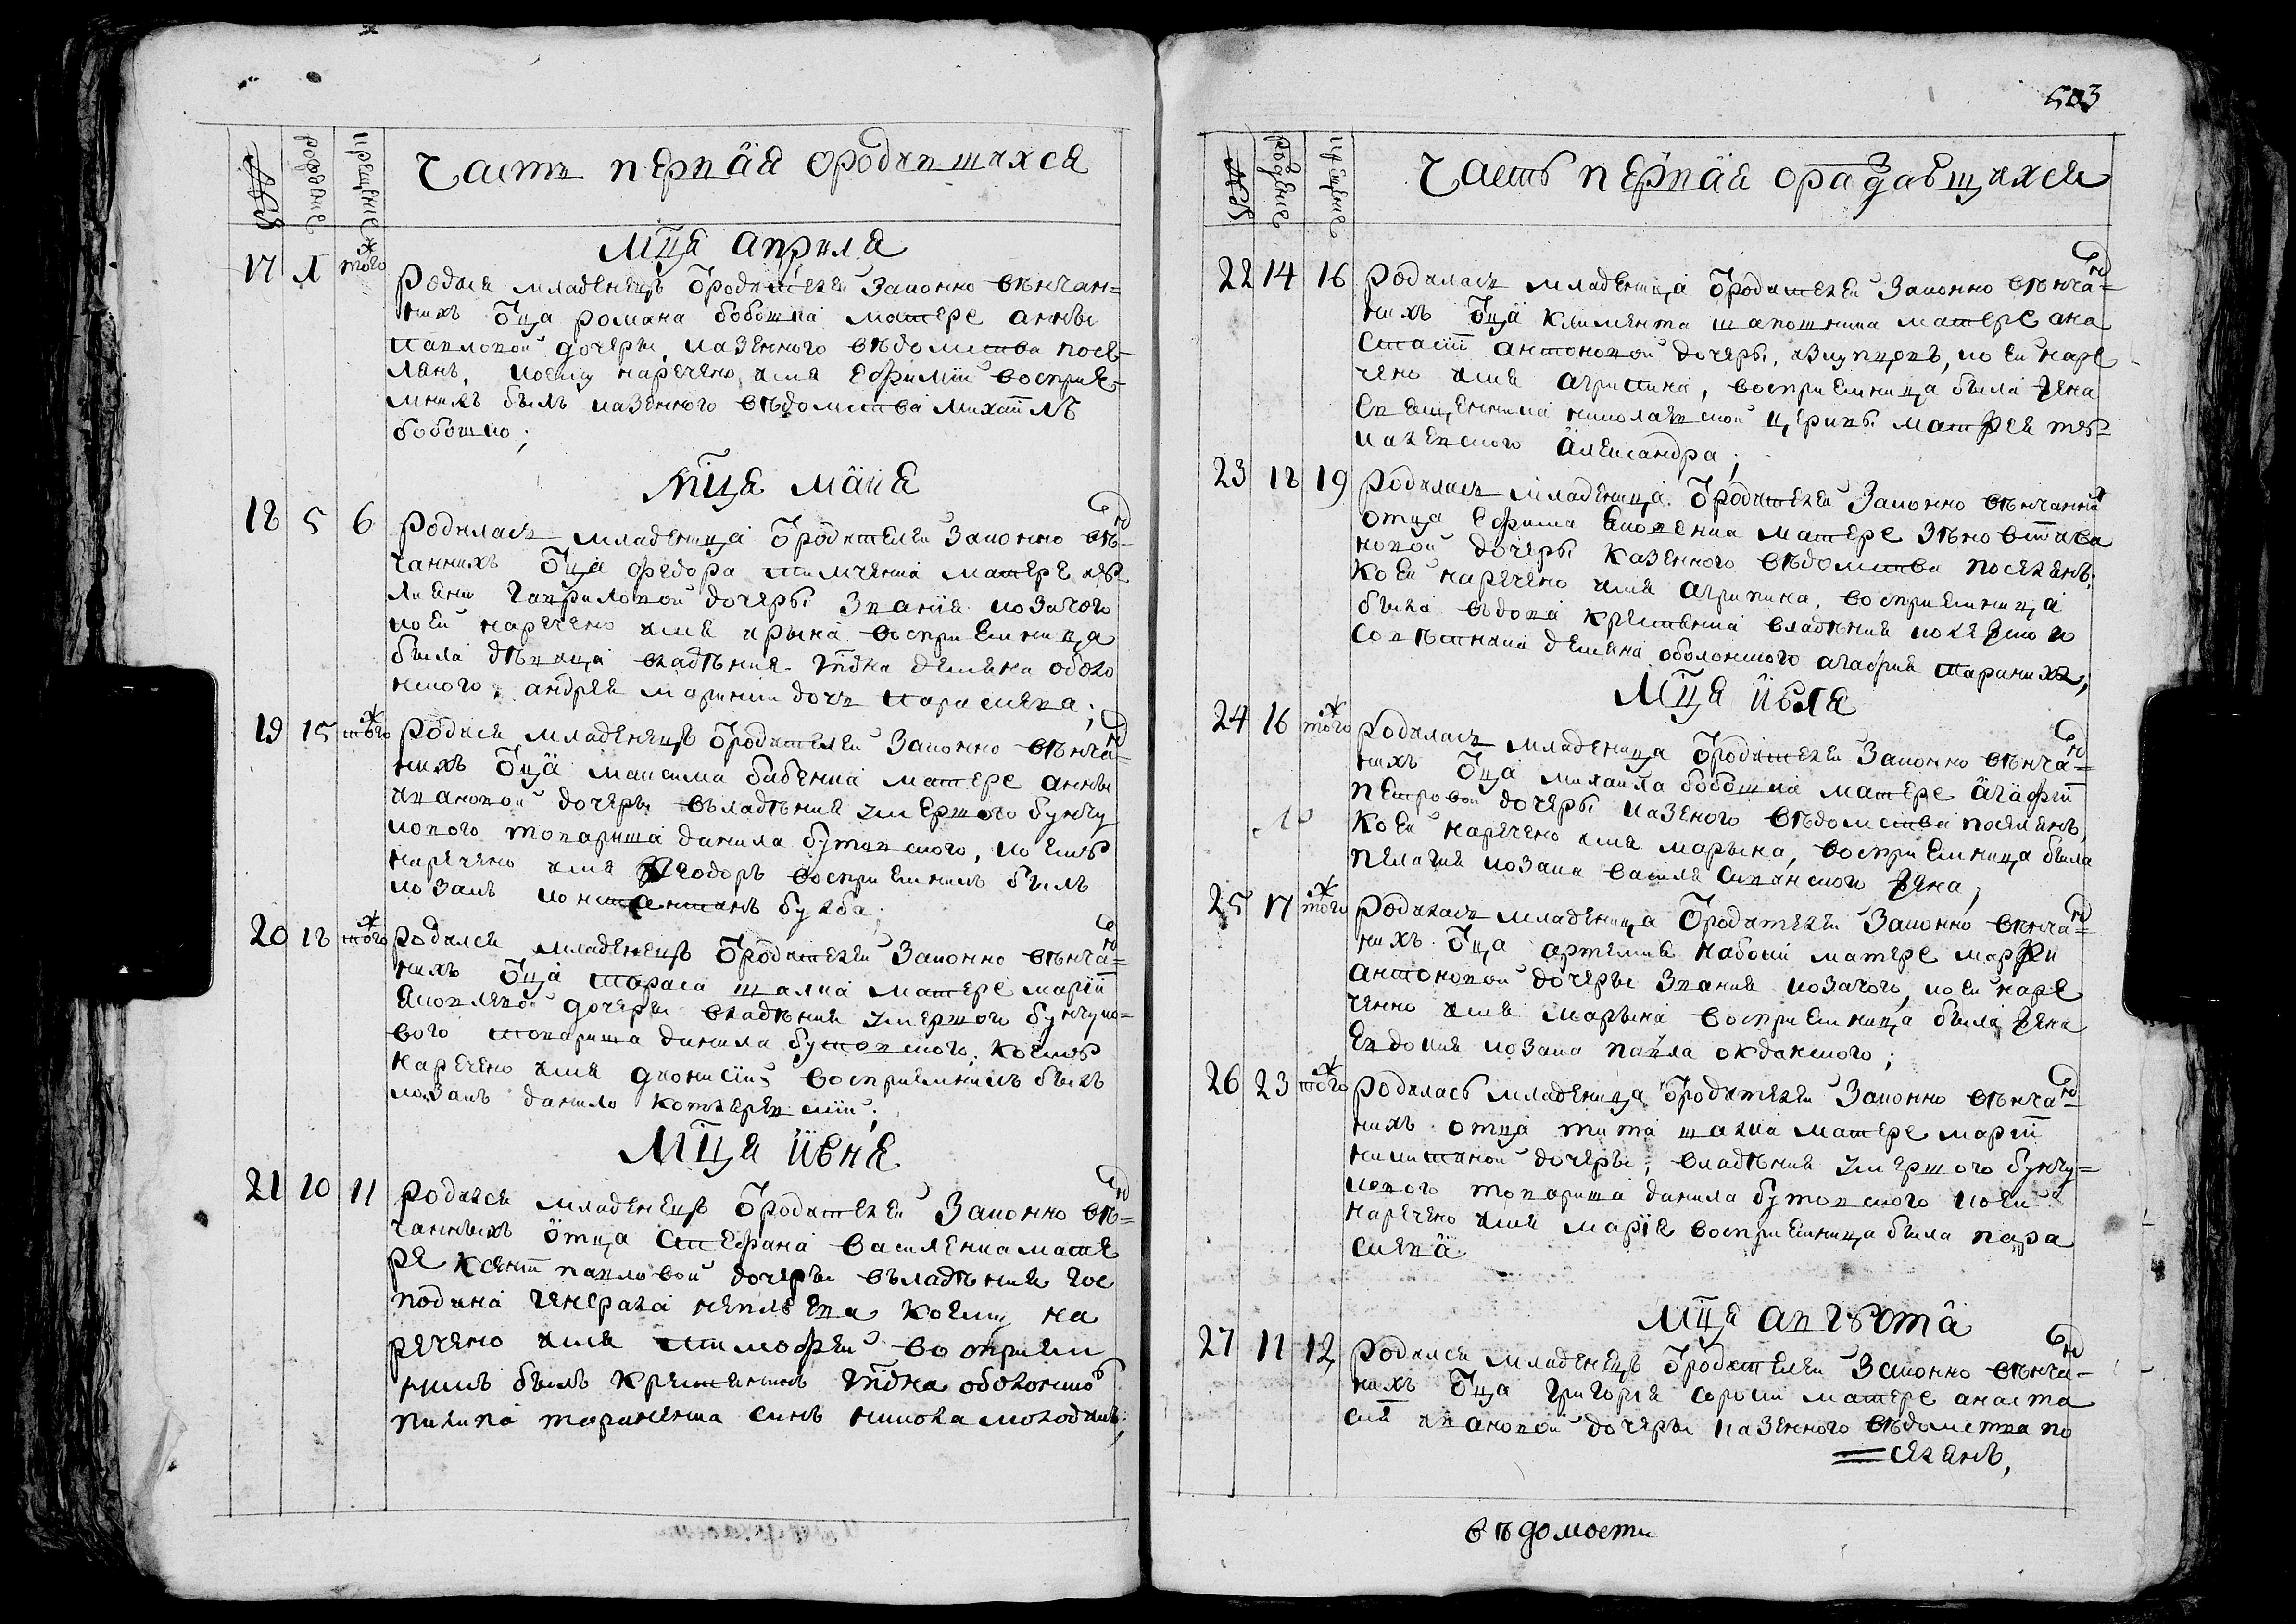 503
№
рождение
крещение
Часть первая ородившихся
Мца априля
17 1 того ж
Родися младенецъ ѿродителей законно вѣнчан=
нихъ ѿца романа бобошка матере анны
павловой дочеры казенного вѣдомства посе-
лянъ, коему наречено имя ефимїй восприе-
мникъ былъ казенного вѣдомства михаилъ
бобошко;
Мца маия
18 5 6
Родилась младеница ѿродителей законно вѣн-
чаннихъ ѿца федора тимченка матере
гавриловой дочеры званїя козачого
коей наречено имя ирына восприемница
была дѣвица владѣния демяна оболо
нского андрея дочь параскева;
19 15 того ж
Родися младенецъ ѿродителей законно вѣнчан=
нихъ ѿца максима бабенка матере анны
ивановой дочеры въладѣния умершого бунчу
кового товариша данила бутовского, коемъ
наречено имя ѳеодоръ восприемникъ былъ
козакъ константинъ булба;
20 18 того ж
Родился младенецъ ѿродителей законно вѣнчан=
нихъ ѿца тараса шалка матере марїи
яковлевой дочеры владѣния умершого бунчуко-
вого товариша данила бутовского, коемъ
наречено имя дионисїй восприемникъ былъ
козакъ данило котляревскїй;
Мца июня
21 10 11
Родился младенецъ ѿродителей законно вѣн=
чанныхъ ѿтца стефана василенка мате
ре ксенїи павловой дочеры въладѣния гос
подина генерала неплуева коему на
речено имя тимофей восприем
никъ былъ оболонского
пилипа мариненка синъ никола молодикъ;
№
рождение
крещение
Часть первая ородившихся
22 14 16
Родилась младеница ѿродителей законно вѣнчан=
нихъ ѿца климента шапошника матере ана
стасїи антоновой дочеры, коей наре
чено имя агрипина, восприемница была жена
священника николаевской церквы
александра;
23 18 19
Родилась младеница ѿродителей законно вѣнчанних
отца ефима яковенка матере
новой дочеры казенного вѣдомства поселянъ;
коей наречено имя агрипина, восприемница
была въдова владѣния
совѣтника демяна оболонского агафия
Мца июля
24 16 того ж
Родилась младеница ѿродителей законно вѣнчан=
нихъ ѿца михайла бобошка матере агафїи
петровой дочеры казеного вѣдомства поселянъ,
коей наречено имя марына, восприемница была
пелагия козака василя жена;
25 17 того ж
Родилась младеница ѿродителей законно вѣнчан=
нихъ ѿца артемия набоки матере марфи
антоновой дочеры звания козачого, коей наре
ченно имя марына восприемница была жена
евдокия козака павла окданского;
26 23 того ж
Родилась младеница ѿродителей законно вѣнчан=
нихъ отца тита шалка матере марїи
никитиной дочеры, владѣния умершого бунчу=
кового товариша данила бутовского коей
наречено имя марїя восприемница была пара
скева
Мца августа
27 11 12
Родился младенецъ ѿродителей законно вѣнчан-
нихъ ѿца григория сороки матере анаста
сїи ивановой дочеры казенного вѣдомства по
=селянъ,
вѣдомости